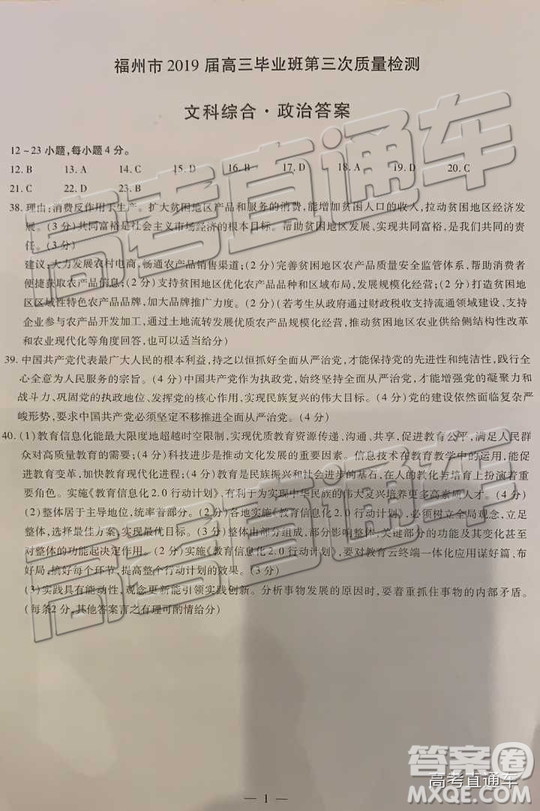 福州市 2019 届高三毕业班第三次质量检测
文科综合·政治答案
12~23 小题,每小题 4 分。
12. B 13. A 14. C 15. D 16. B 17. D 18. A 19. D 20. C
21. C 22. D 23. B
38. 理由:消费反作用于生产。扩大贫困地区产品和服务的消费,能增加贫困人口的收入,拉动贫困地区经济发
展。(3 分)共同富裕是社会主义市场经济的根本目标。帮助贫困地区发展,实现共同富裕,是我们共同的责
任。(3 分)
建议:大力发展农村电商,畅通农产品销售渠道;(2 分)完善贫困地区农产品质量安全监管体系,帮助消费者
便捷获取农产品信息;(2 分)支持贫困地区优化农产品品种和区域布局,发展规模化经营;(2 分)打造贫困地
区区域特色农产品品牌,加大品牌推广力度。(2 分)(若考生从政府通过财政税收支持流通领域建设,支持
企业参与农产品开发与加工,引导土地流转发展优质农产品规模化经营,推动贫困地区农业供给侧结构性改革
和农业现代化等角度回答,也可以适当给分)
39. 中国共产党代表最广大人民的根本利益,持之以恒抓好全面从严治党,才能保持党的先进性和纯洁性,践行全
心全意为人民服务的宗旨。(4 分)中国共产党作为执政党,始终坚持全面从严治党,才能增强党的凝聚力和
战斗力,巩固党的执政地位、发挥党的核心作用,实现民族复兴的伟大目标。(4 分)党的建设依然面临复杂严
峻形势,要求中国共产党必须坚定不移推进全面从严治党。(4 分)
40. (1)教育信息化能最大限度地超越时空限制,实现优质教育资源传递、沟通、共享,促进教育公平,满足人民群
众对高质量教育的需要;(4 分)科技进步是推动文化发展的重要因素。信息技术在教育教学中的运用,能促
进教育变革,加快推进教育现代化进程;(3 分)教育是民族振兴和社会进步的基石,在人的教化与培育上扮演着重
要角色。实施《教育信息化 2.0 行动计划》,有利于为实现中华民族的伟大复兴培养更多高素质人才。(3 分)
(2)整体居于主导地位,统率着部分。(2 分)各地实施《教育信息化 2.0 行动计划》,必须树立全局观念,立足
整体,选择最佳方案,实现最优目标。(3 分)整体由部分组成,部分影响整体,关键部分的功能及其变化甚至
对整体的功能起决定作用。(2 分)实施《教育信息化 2.0 行动计划》,要对教育云终端一体化应用谋好篇,布
好局,统好每个环节,提高整个行动计划的效果。(3 分)
(3)实践具有能动性,观念更新能引领实践创新。分析事物发展的原因时,要着重抓住事物的内部矛盾。
(每条 2 分,其他答案言之有理可酌情给分)
— 1 —
高考直通车
高考直通车
高考直通车
答案圈
高考直通车
MXQE.COM